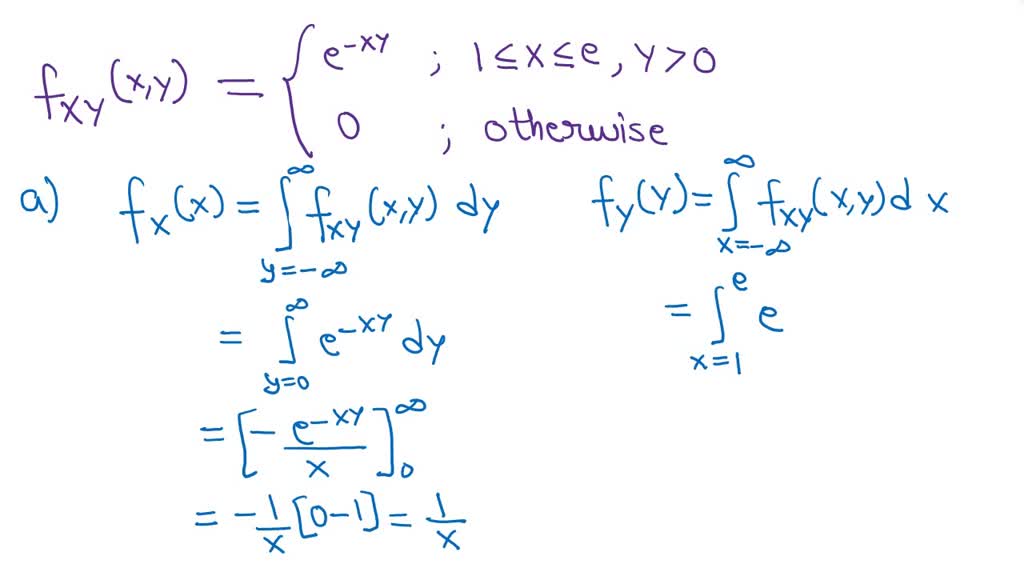 f_XY(x,y) = { e^-xy ; 1 ≤ x ≤ e, y > 0
0 ; otherwise
a) f_X(x) = ∫_{y=-∞}^{∞} f_XY(x,y) dy
= ∫_{y=0}^{∞} e^-xy dy
= [- e^-xy / x]_0^∞
= - 1/x [0-1] = 1/x
f_Y(y) = ∫_{x=-∞}^{∞} f_XY(x,y) d x
= ∫_{x=1}^{e} e